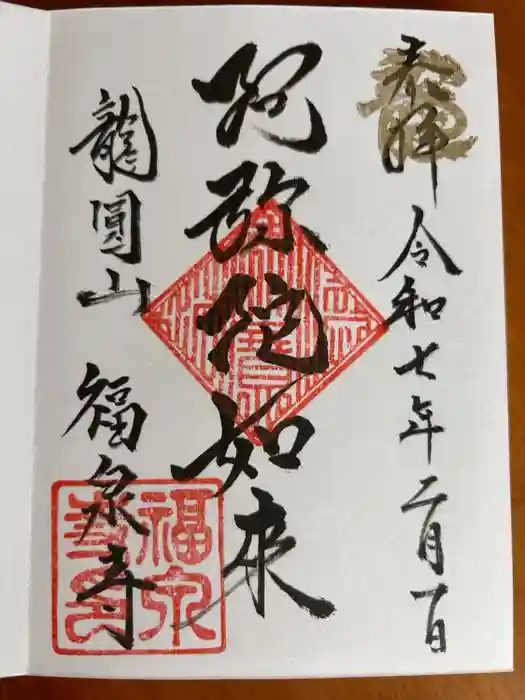 奉拝 令和七年二月一日
阿弥陀如来
龍圓山 福泉寺